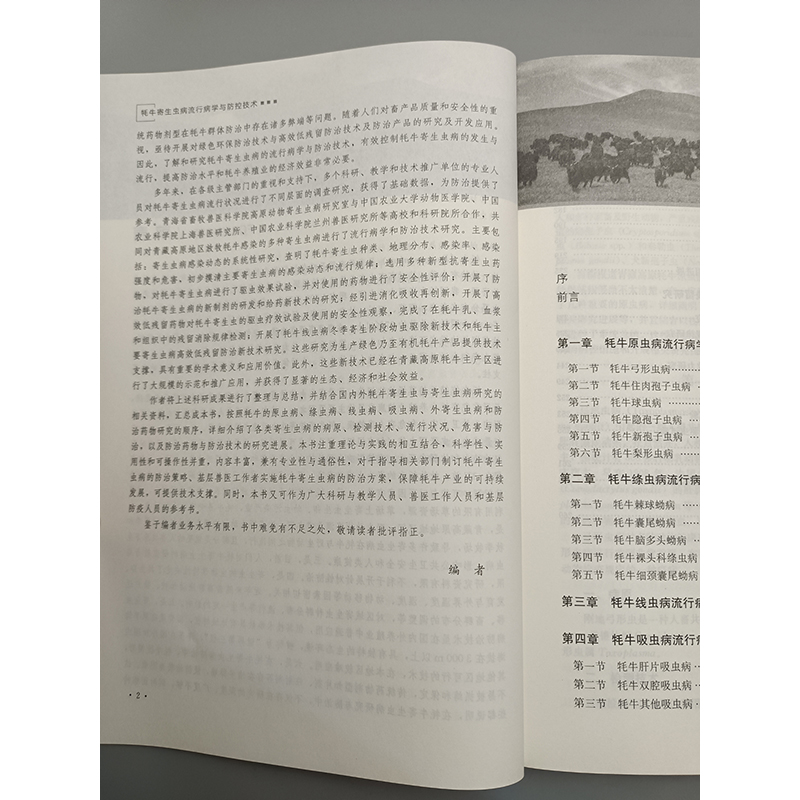 牦牛寄生虫病流行病学与防控技术
统药物剂型在牦牛群体防治中存在诸多弊端等问题。随着人们对畜产品质量和安全性的重
视，亟待开展对绿色环保防治技术与高效低残留防治技术及防治产品的研究及开发应用。
因此，了解和研究牦牛寄生虫病的流行病学与防治技术，有效控制牦牛寄生虫病的发生与
流行，提高防治水平和牦牛养殖业的经济效益非常必要。
多年来，在各级主管部门的重视和支持下，多个科研、教学和技术推广单位的专业人
员对牦牛寄生虫病流行状况进行了不同层面的调查研究，获得了基础数据，为防治提供了
参考。青海省畜牧兽医科学院高原动物寄生虫病研究室与中国农业大学动物医学院、中国
农业科学院上海兽医研究所、中国农业科学院兰州兽医研究所等高校和科研院所合作，共
同对青藏高原地区放牧牦牛感染的多种寄生虫病进行了流行病学和防治技术研究。主要包
括：寄生虫病感染动态的系统性研究，查明了牦牛寄生虫种类、地理分布、感染率、感染
强度和危害，初步摸清主要寄生虫病的感染动态和流行规律；选用多种新型抗寄生虫药
物，对牦牛寄生虫病进行了驱虫效果试验，并对使用的药物进行了安全性评价；开展了防
治牦牛寄生虫病的新制剂的研发和给药新技术的研究；经引进消化吸收再创新，开展了高
效低残留药物对牦牛寄生虫的驱虫疗效试验及使用的安全性观察，完成了在牦牛乳、血浆
和组织中的残留消除规律检测；开展了牦牛线虫病冬季寄生阶段幼虫驱除新技术和牦牛主
要寄生虫病高效低残留防治新技术研究。这些研究为生产绿色乃至有机牦牛产品提供技术
支撑，具有重要的学术意义和应用价值。此外，这些新技术已经在青藏高原牦牛主产区进
行了大规模的示范和推广应用，并获得了显著的生态、经济和社会效益。
作者将上述科研成果进行了整理与总结，并结合国内外牦牛寄生虫与寄生虫病研究的
相关资料，汇总成本书，按照牦牛的原虫病、绦虫病、线虫病、吸虫病、外寄生虫病和防
治药物研究的顺序，详细介绍了各类寄生虫病的病原、检测技术、流行状况、危害与防
治，以及防治药物与防治技术的研究进展。本书注重理论与实践的相互结合，科学性、实
用性和可操作性并重，内容丰富，兼有专业性与通俗性，对于指导相关部门制订牦牛寄生
虫病的防治策略、基层兽医工作者实施牦牛寄生虫病的防治方案，保障牦牛产业的可持续
发展，可提供技术支撑。同时，本书又可作为广大科研与教学人员、兽医工作人员和基层
防疫人员的参考书。
鉴于编者业务水平有限，书中难免有不足之处，敬请读者批评指正。
编 者
· 2 ·
序
前言
第一章 牦牛原虫病流行病学
第一节 牦牛弓形虫病
第二节 牦牛住肉孢子虫病
第三节 牦牛球虫病
第四节 牦牛隐孢子虫病
第五节 牦牛新孢子虫病
第六节 牦牛梨形虫病
第二章 牦牛绦虫病流行病
第一节 牦牛棘球蚴病
第二节 牦牛囊尾蚴病
第三节 牦牛脑多头蚴病
第四节 牦牛裸头科绦虫病
第五节 牦牛细颈囊尾蚴病
第三章 牦牛线虫病流行病
第四章 牦牛吸虫病流行病
第一节 牦牛肝片吸虫病
第二节 牦牛双腔吸虫病
第三节 牦牛其他吸虫病